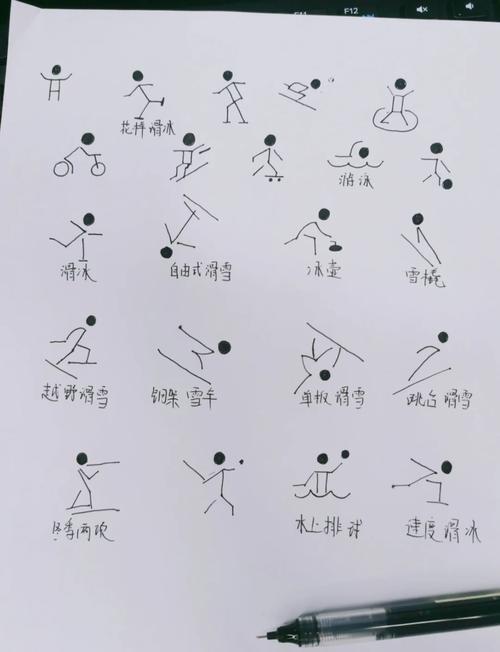 F11 F12
花样滑冰
游泳
滑冰 自由式滑雪 冰壶 雪橇
越野滑雪 钢架雪车 单板滑雪 跳台滑雪
冬季两项 水上排球 速度滑冰